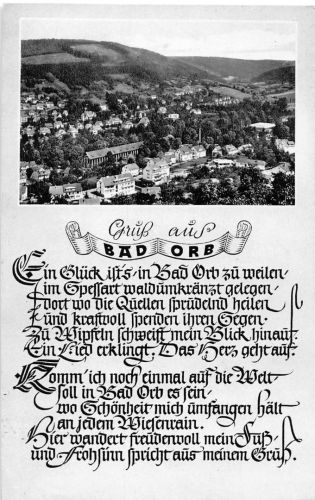 Gruß aus
BAD ORB
Ein Glück ist's in Bad Orb zu weilen
im Spessart waldumkränzt gelegen
dort wo die Quellen sprudelnd heilen
und kraftvoll spenden ihren Segen.
Zu Wipfeln schweift mein Blick hinauf.
Ein Lied erklingt, Das Herz geht auf.
Komm' ich noch einmal auf die Welt
soll in Bad Orb es sein
wo Schönheit mich umfangen hält
an jedem Wiesenrain.
Hier wandert freudenvoll mein Fuß
und Frohsinn spricht aus meinem Gruß.